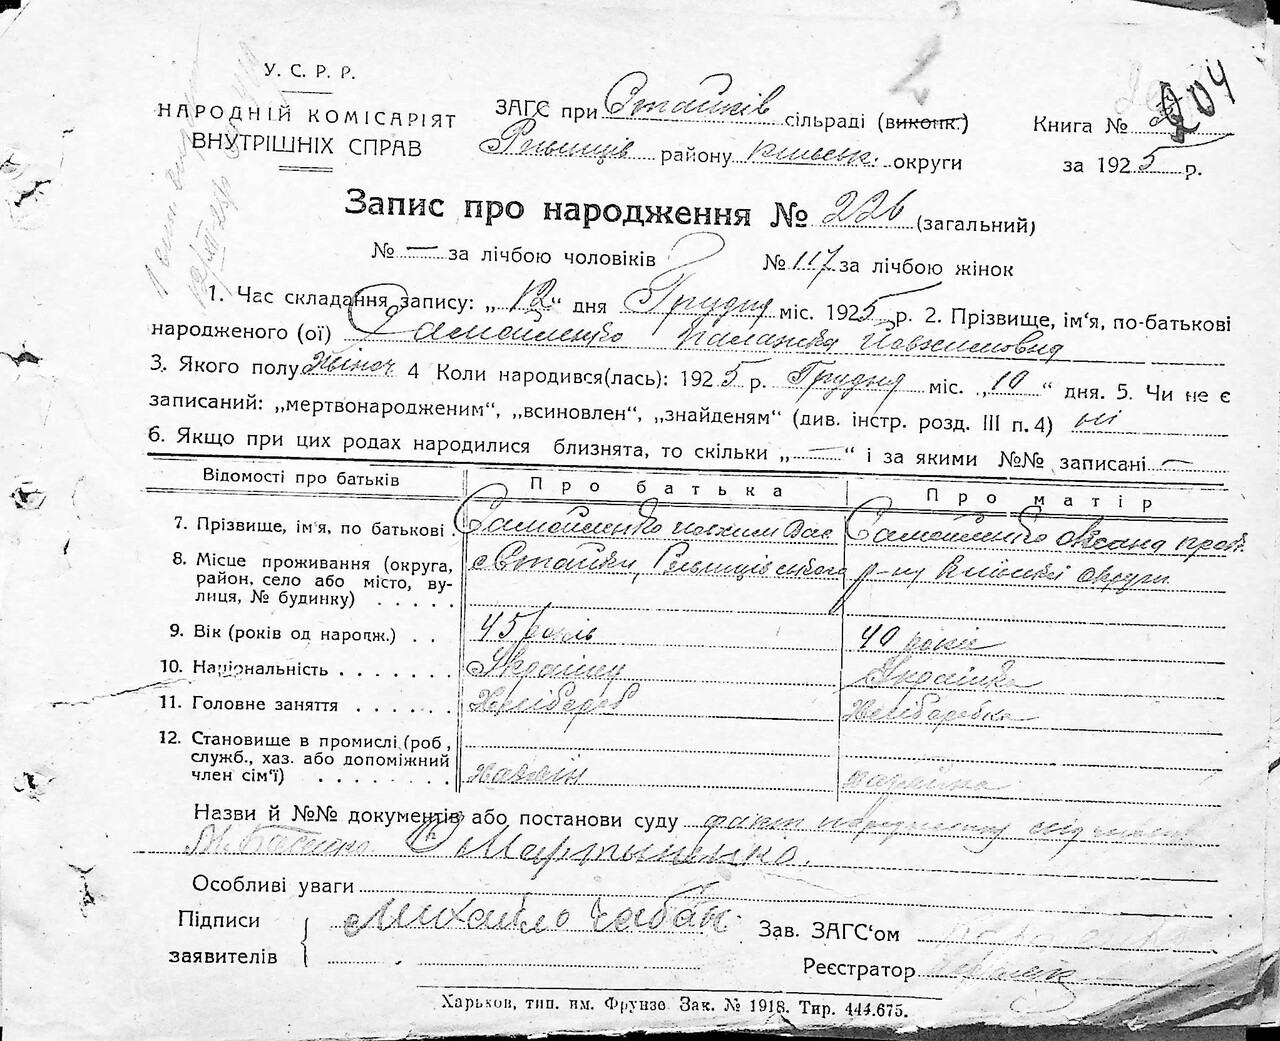 204
У. С. Р. Р.
НАРОДНІЙ КОМІСАРІЯТ
ВНУТРІШНІХ СПРАВ
ЗАГС при Стайків сільраді (виконк.)
Ржищів району київськ. округи
Книга №
за 1925 р.
Запис про народження № 226 (загальний)
№ — за лічбою чоловіків № 117 за лічбою жінок
1. Час складання запису: „ 12 “ дня Грудня міс. 1925 р. 2. Прізвище, ім‘я, по-батькові
народженого (ої) Самойленко Палажка Йовхимовна
3. Якого полу Жіноч 4 Коли народився(лась): 1925 р. Грудня міс. „ 10 “ дня. 5. Чи не є
записаний: „мертвонародженим“, „всиновлен“, „знайденям“ (див. інстр. розд. III п. 4) ні
6. Якщо при цих родах народилися близнята, то скільки „ — “ і за якими №№ записані —
Відомості про батьків Про батька Про матір
7. Прізвище, ім‘я, по батькові . Самойленко Вас Самойленко
8. Місце проживання (округа, с Стайки, Ржищівського р-ну Київської округи
район, село або місто, ву-
лиця, № будинку) . . . . .
9. Вік (років од народж.) . . 45 років 40 років
10. Національність . . . . . . . Українец Українка
11. Головне заняття . . . . . . Хлібороб Хліборобка
12. Становище в промислі (роб,
служб., хаз. або допоміжний
член сім‘ї) . . . . . . . . хазяін хазяйка
Назви й №№ документів або постанови суду факт
Мартыненко.
Особливі уваги
Підписи Михайло Чабан. Зав. ЗАГС‘ом
заявителів
Реєстратор
Харьков, тип. им. Фрунзе Зак. № 1918. Тир. 444.675.